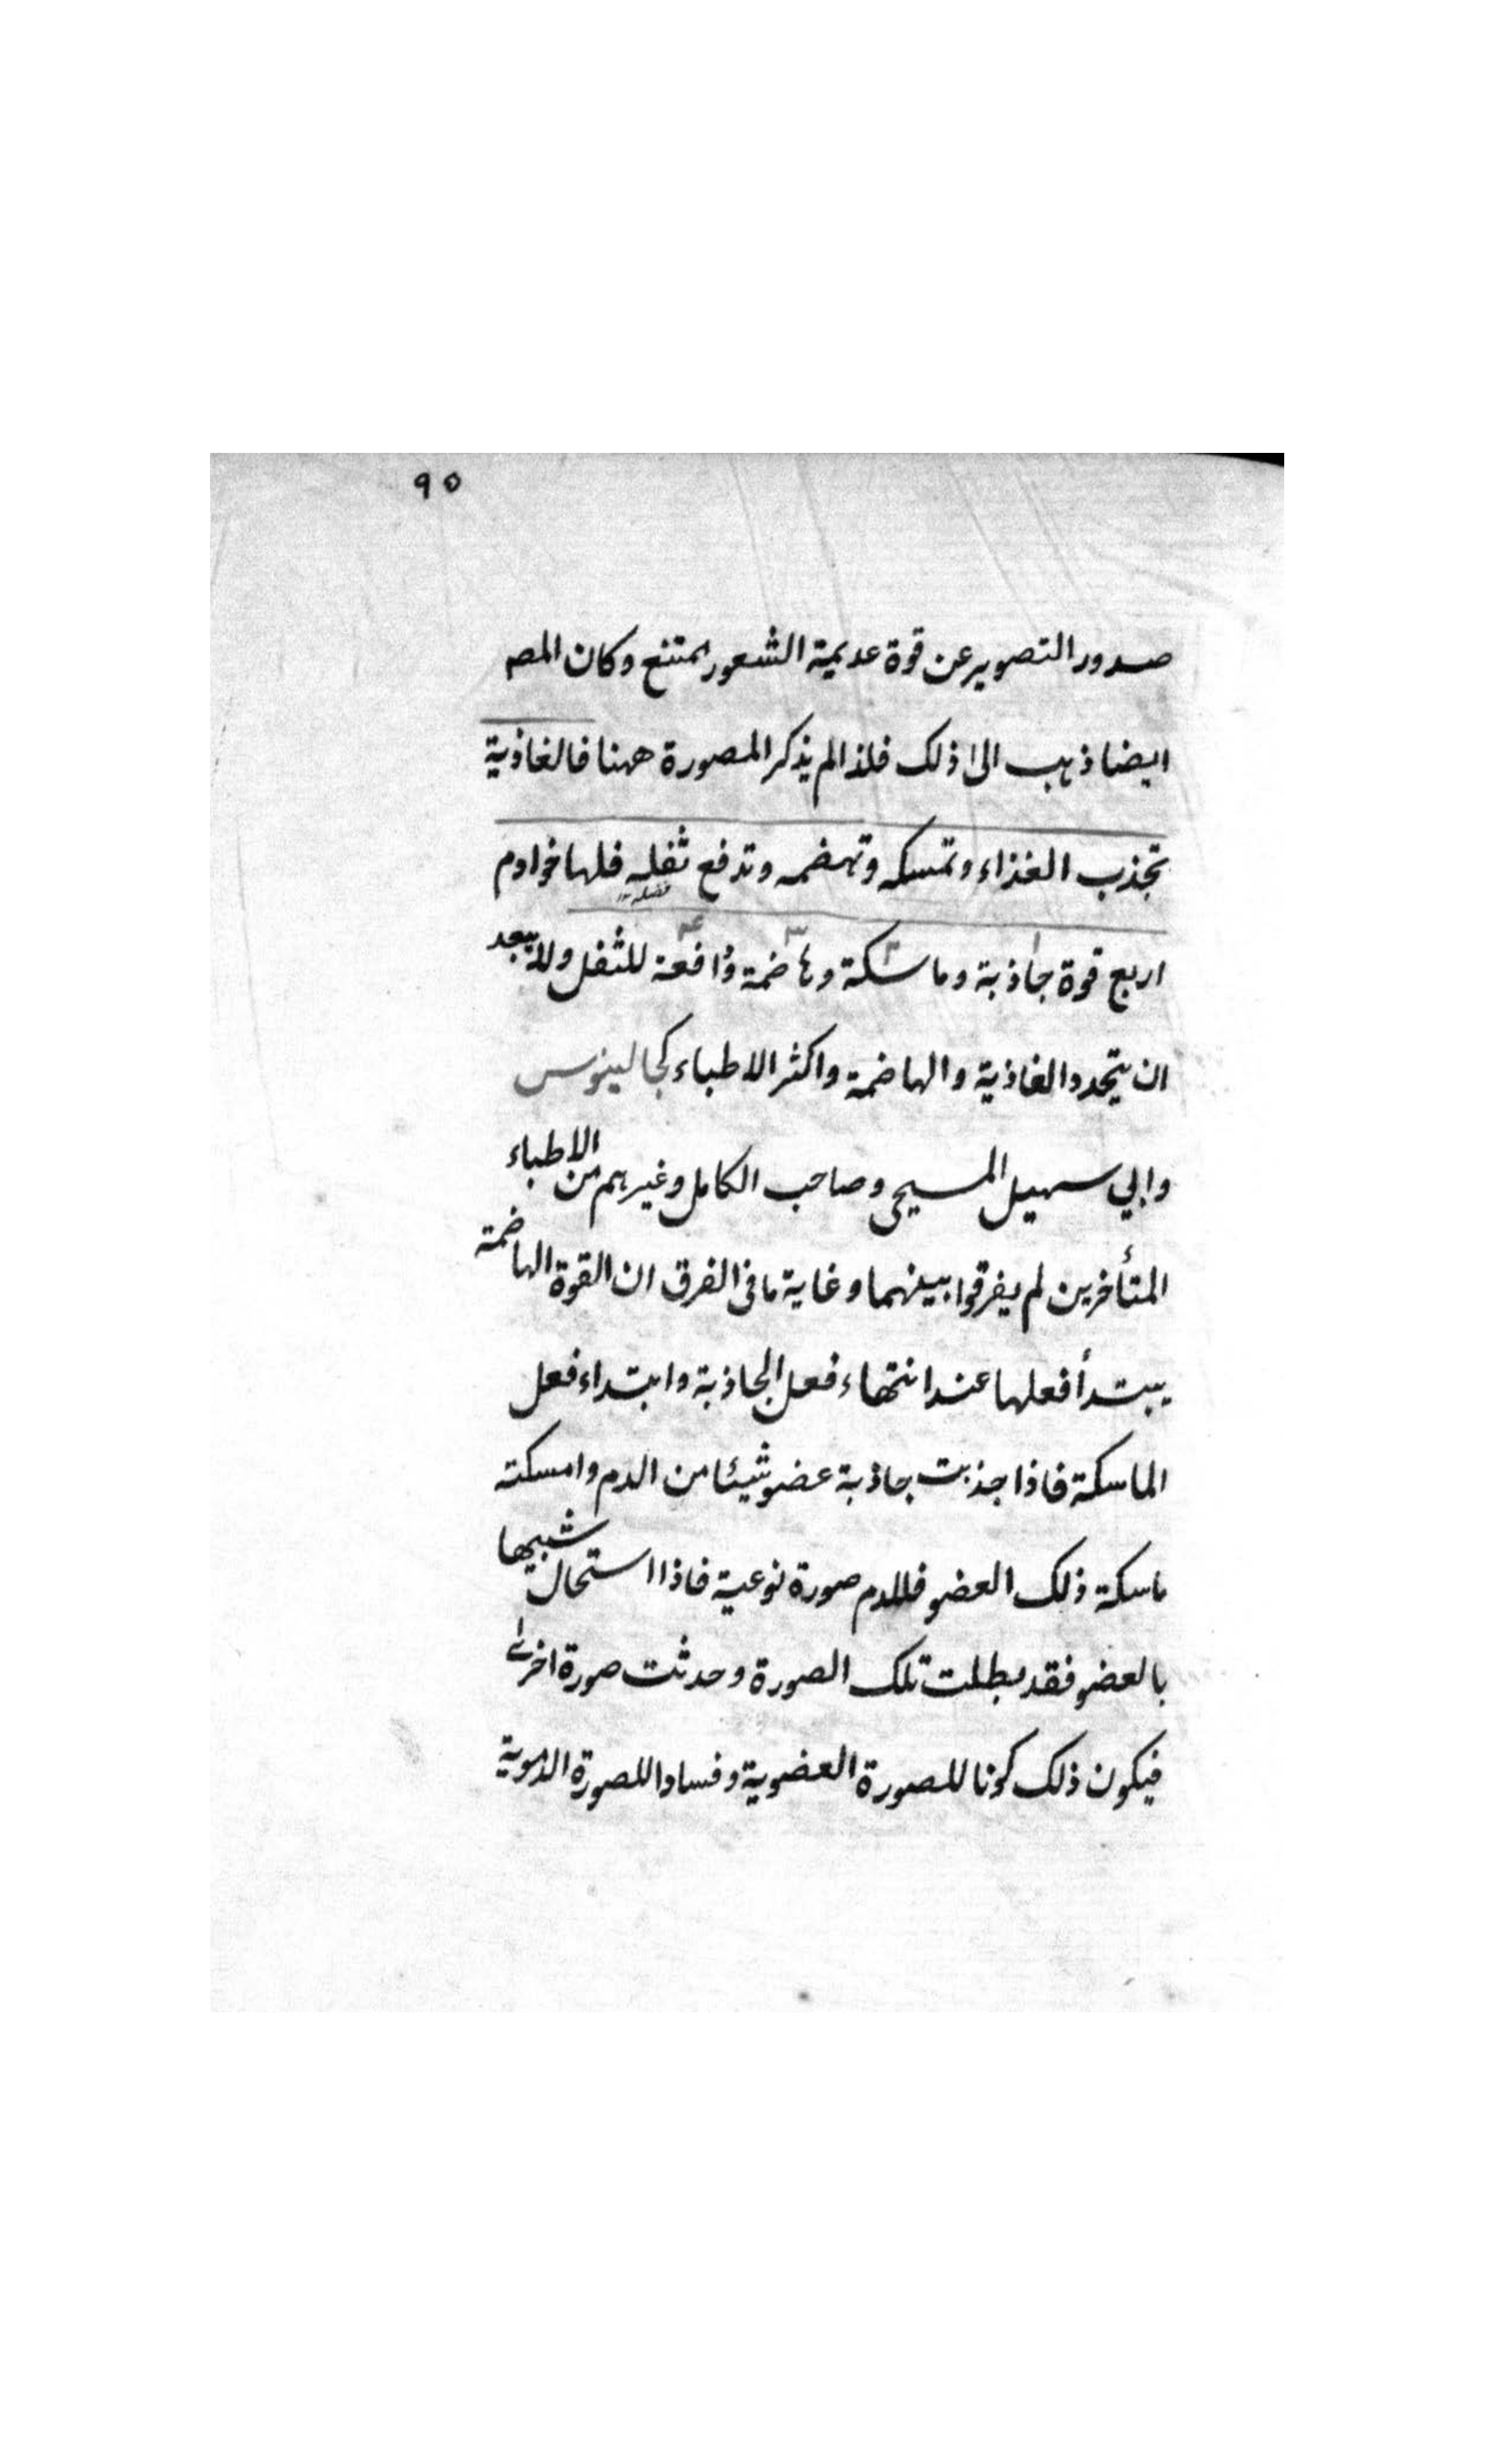 ٩٥
صدور التصوير عن قوة عديمة الشعور ممتنع وكان المصـ
ايضا ذهب الى ذلك فلذا لم يذكر المصورة ههنا فالغاذية
تجذب الغذاء وتمسكه وتهضمه وتدفع ثفله فلها خوادم
فضله
١ ٢ ٣ ٤
اربع قوة جاذبة وماسكة وهاضمة ودافعة للثفل ولا يبعد
ان يتحد الغاذية والهاضمة واكثر الاطباء كجالينوس
وابي سهيل المسيحي وصاحب الكامل وغيرهم من الاطباء
المتأخرين لم يفرقوا بينهما وغاية ما في الفرق ان القوة الهاضمة
يبتدأ فعلها عند انتهاء فعل الجاذبة وابتداء فعل
الماسكة فاذا جذبت جاذبة عضو شيئا من الدم وامسكته
ماسكة ذلك العضو فللدم صورة نوعية فاذا استحال شبيها
بالعضو فقد بطلت تلك الصورة وحدثت صورة اخرىٰ
فيكون ذلك كونا للصورة العضوية وفسادا للصورة الدموية